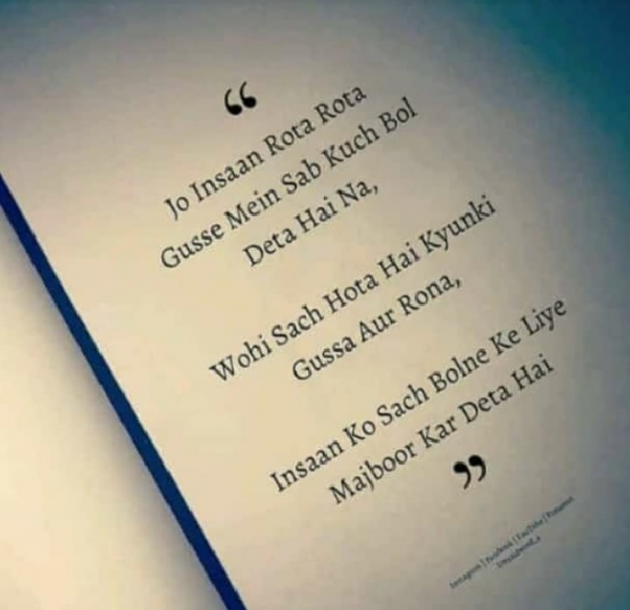 Jo Insaan Rota Rota
Gusse Mein Sab Kuch Bol
Deta Hai Na,
Wohi Sach Hota Hai Kyunki
Gussa Aur Rona,
Insaan Ko Sach Bolne Ke Liye
Majboor Kar Deta Hai
Instagram | Facebook | YouTube | Pinterest